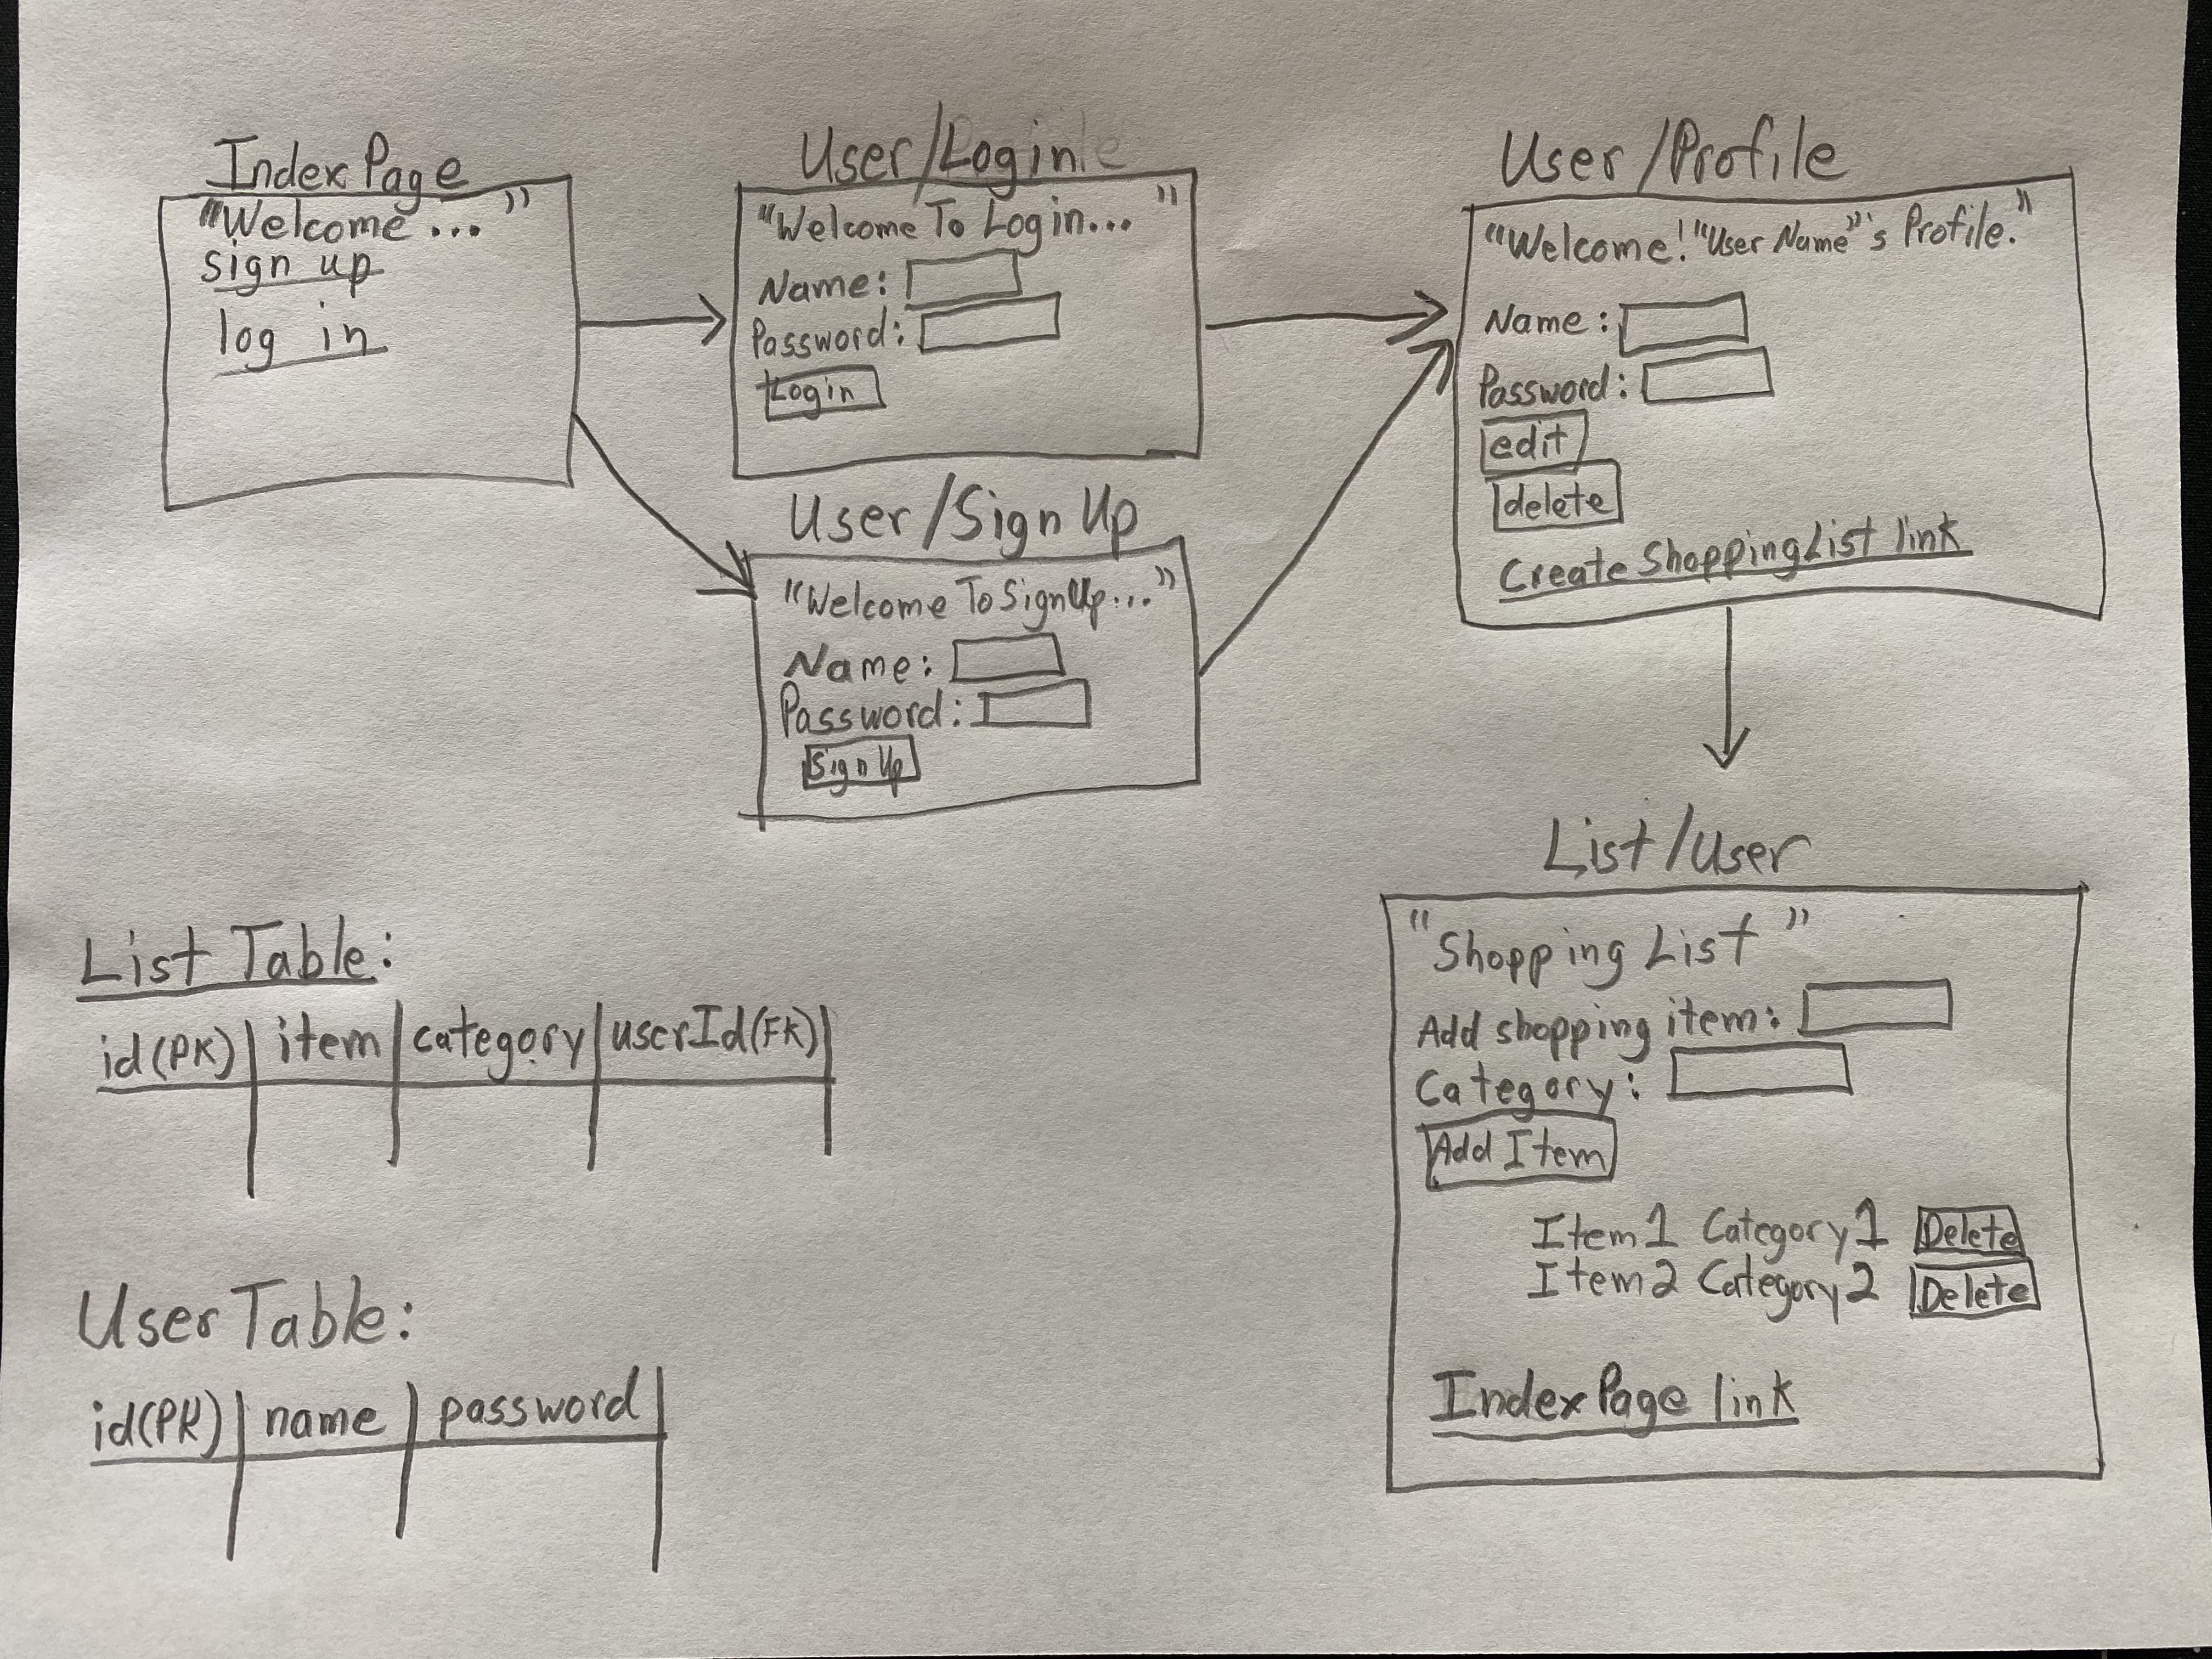 Index Page
"Welcome... "
sign up
log in
User/Login
"Welcome To Login... "
Name:
Password:
Login
User/Sign Up
"Welcome To SignUp... "
Name:
Password:
Sign Up
User/Profile
"Welcome! "User Name"'s Profile. "
Name:
Password:
edit
delete
Create Shopping List link
List/User
"Shopping List "
Add shopping item:
Category:
Add Item
Item 1 Category 1 Delete
Item 2 Category 2 Delete
Index Page link
List Table:
id(PK)|item|category|userId(FK)|
User Table:
id(PK)|name|password|